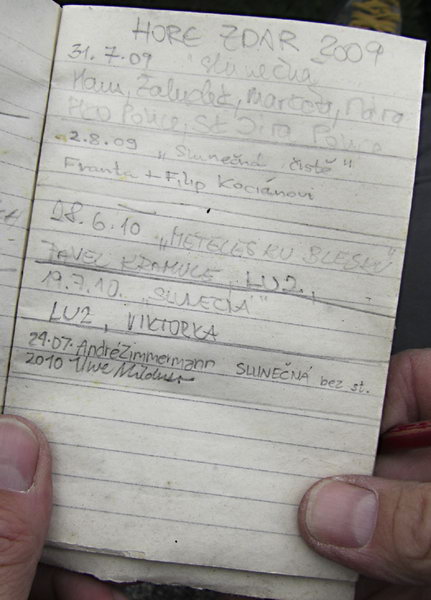 HORE ZDAR 2009
31.7.09 "Slunečná
Mam, Žaludek,
HLO Police, St. Jíra Police
2.8.09 "Slunečná čistě"
Franta + Filip Kociánovi
08.6.10 "METELESKU BLESKU"
PAVEL KRAHULE, LUJ.,
19.7.10. "SLUNEČNÁ"
LUJ, VIKTORKA
24.07. André Zimmermann SLUNEČNÁ bez st.
2010 Uwe